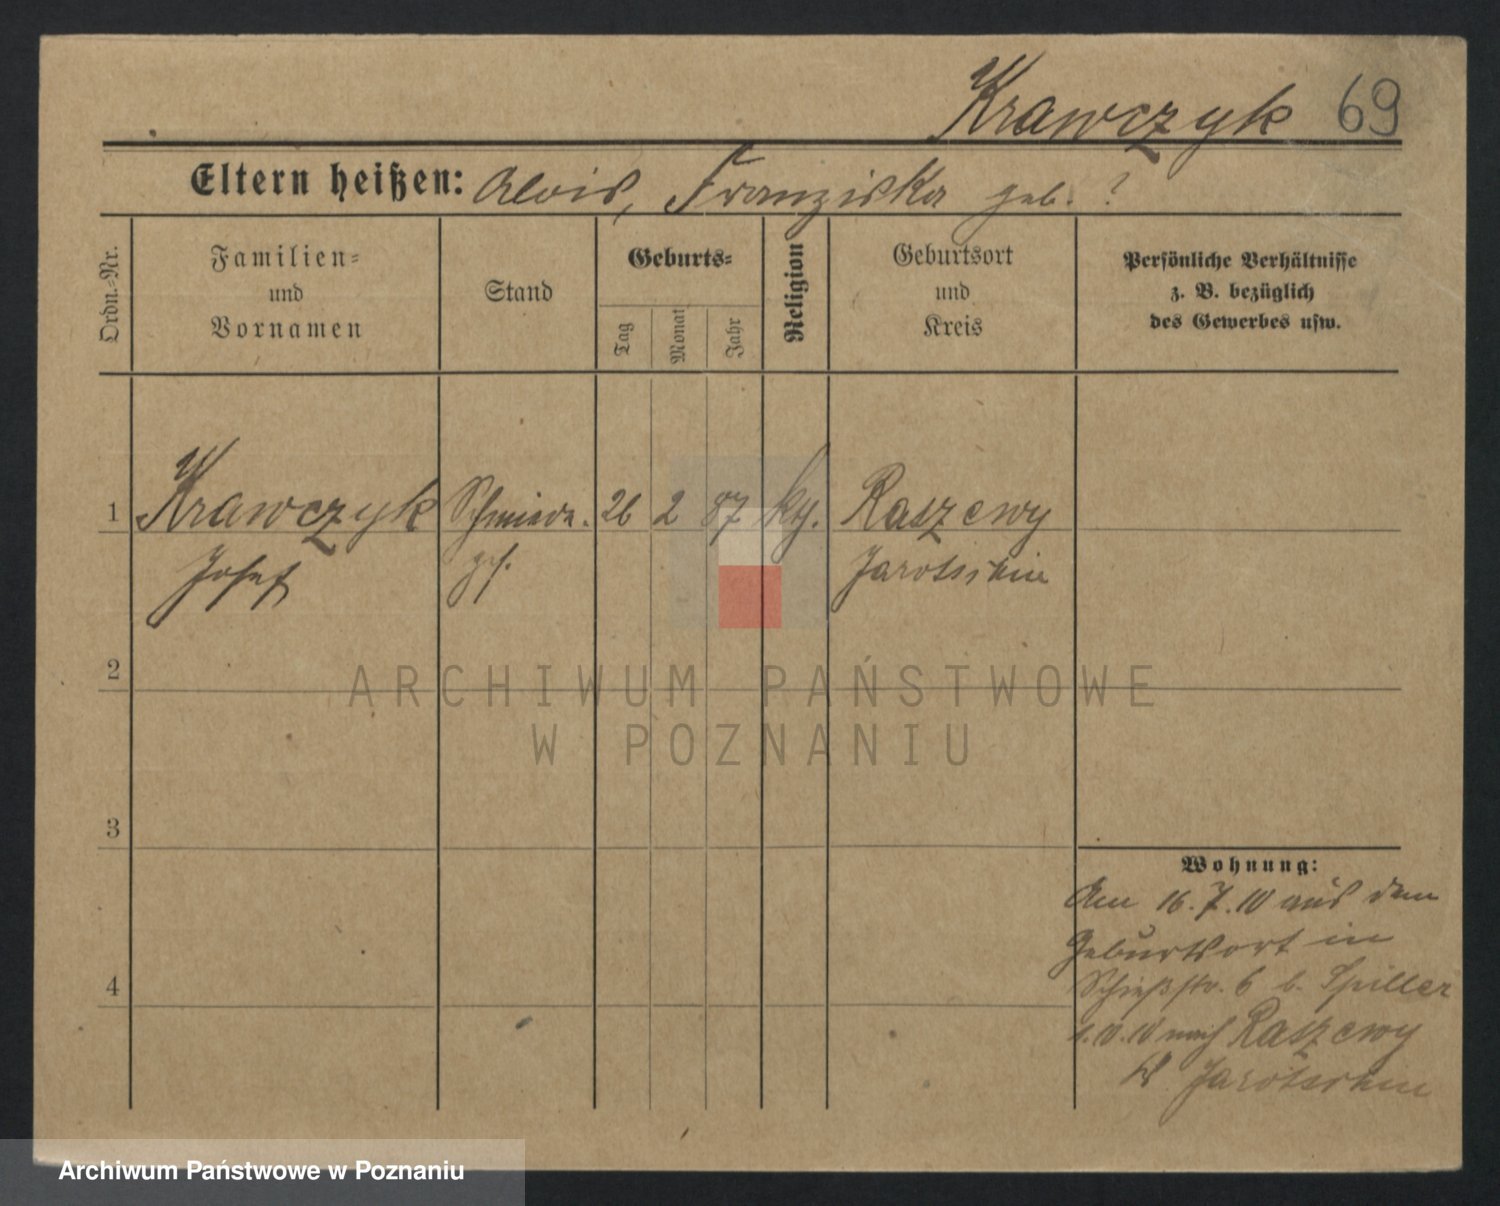 Krawczyk 69
Eltern heißen: Alois, Franziska geb. ?
Ordn.-Nr.
Familien-
und
Vornamen
Stand
Geburts-
Tag
Monat
Jahr
Religion
Geburtsort
und
Kreis
Persönliche Verhältnisse
z. B. bezüglich
des Gewerbes usw.
1 Krawczyk Schmiede. 26 2 87 kth. Raszewy
Josef ges. Jarotschin
2
3
4
Wohnung:
Am 16.7.10 aus dem
Geburtsort in
Schießstr. 6 b. Spiller
nach Raszewy
Jarotschin
ARCHIWUM PAŃSTWOWE
W POZNANIU
Archiwum Państwowe w Poznaniu